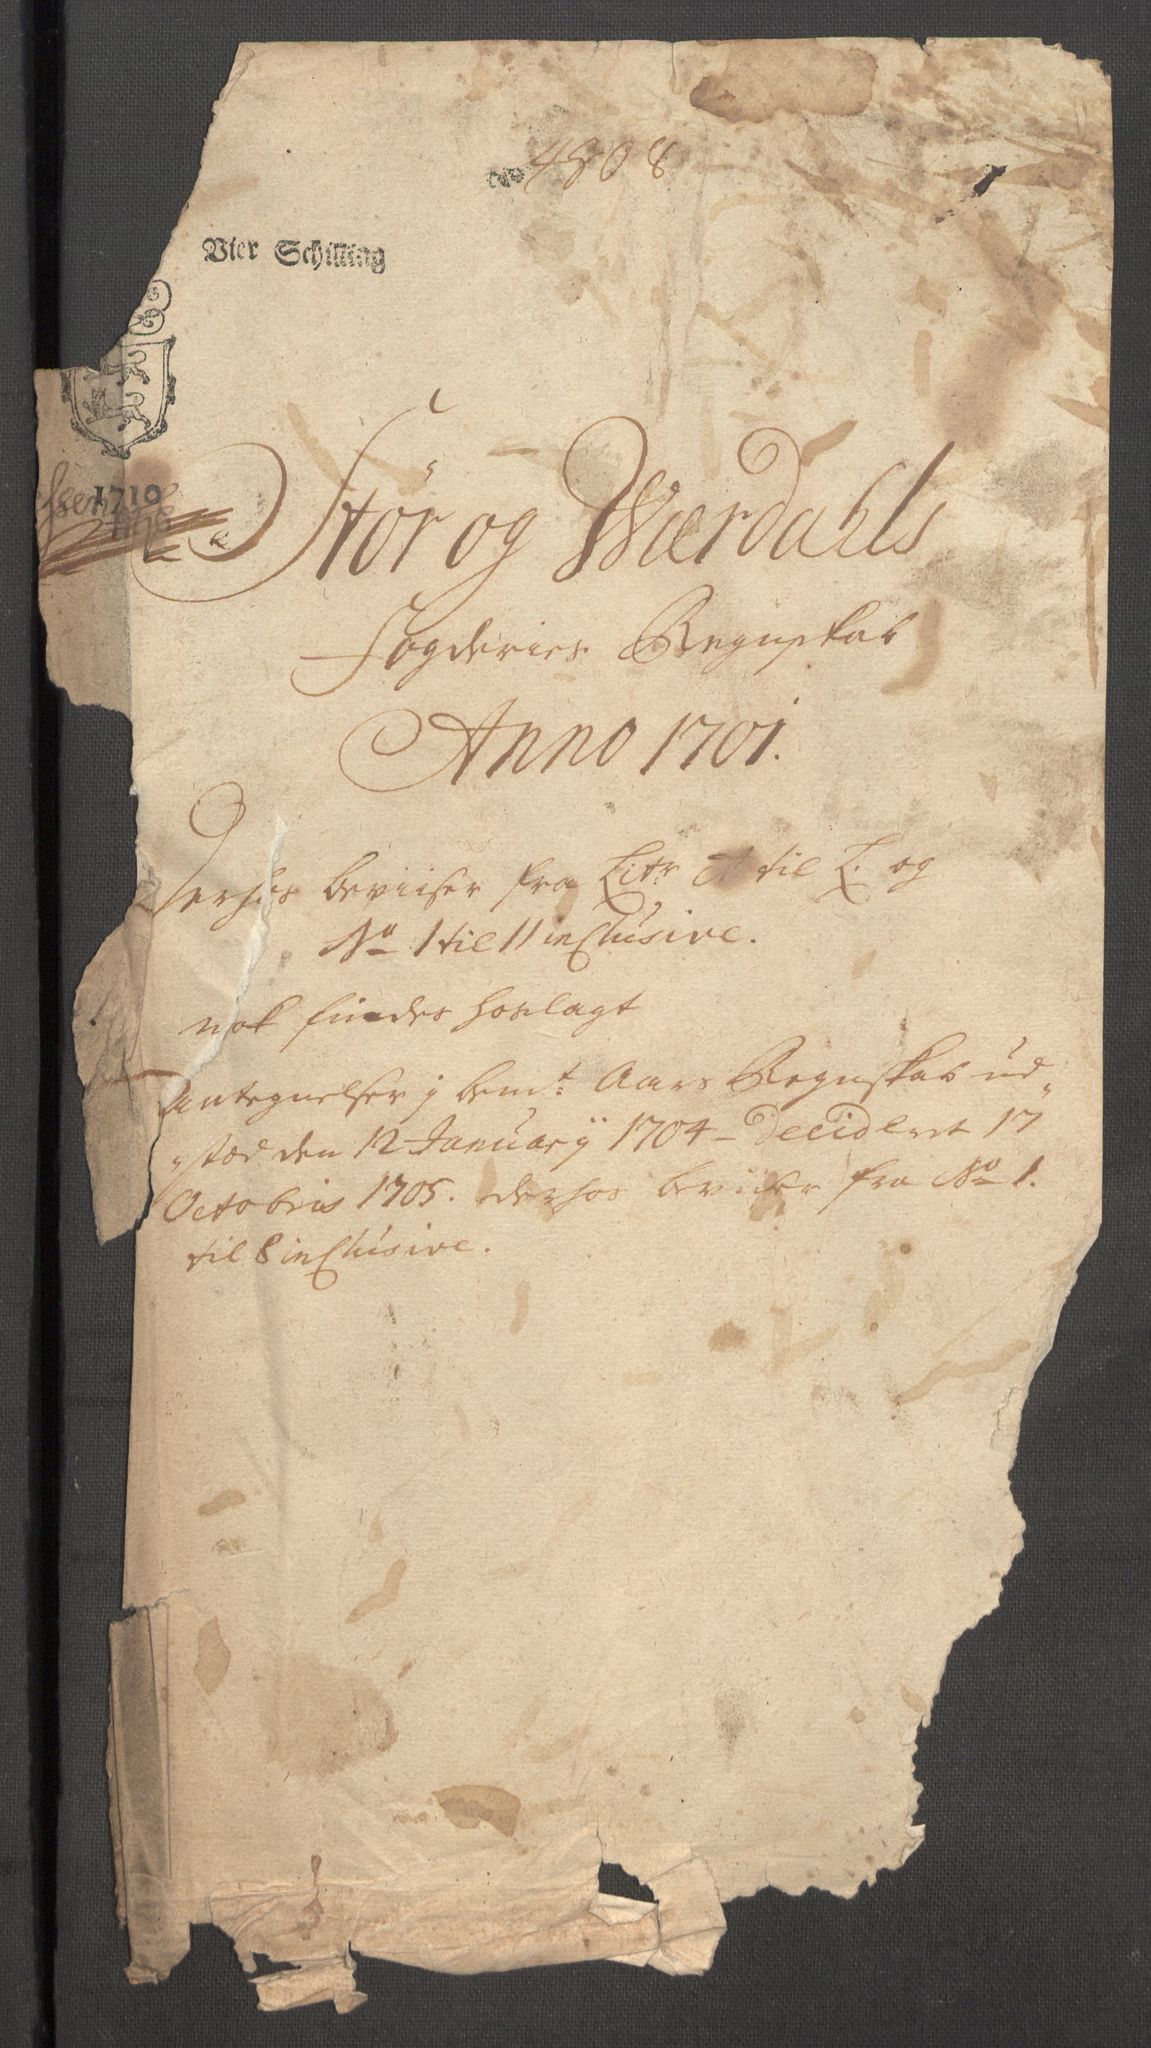 No 4808
Vier Schilling
1710
Stör og Wærdahls
Fogderies Regnskab
Anno 1701.
Derhos beviiser fra Litr A til L. og
No 1 til 11 inclusive.
nok findes hoslagt
Antegnelser j bemt: Aars Regnskab ud„
„stæd den 12 Januarij 1704 - Decideret 17
Octobris 1705. derhos beviiser fra No 1.
til 8 inclusive.